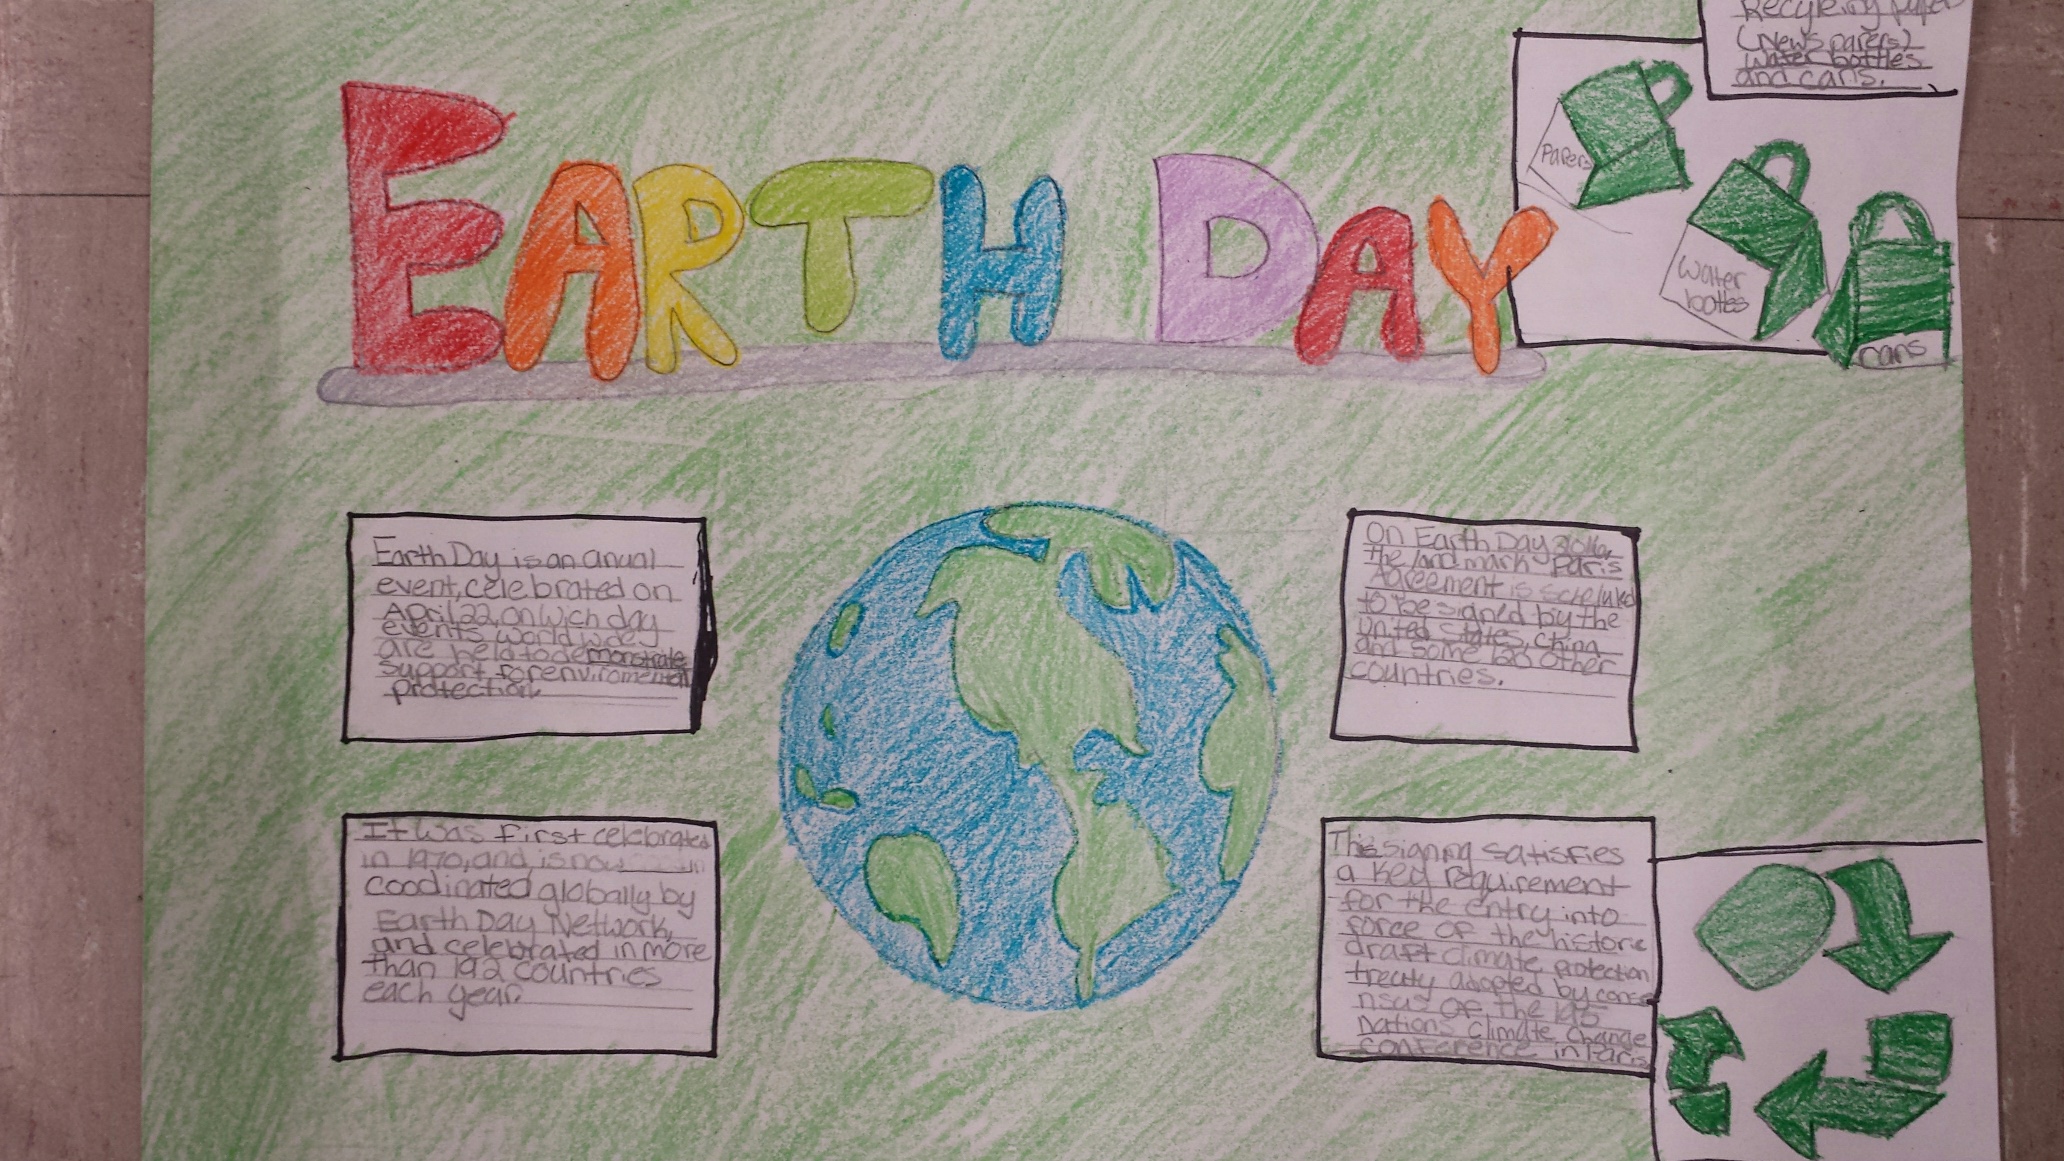 EARTH DAY
Recycleing papers
(News papers)
water bottles
and cans.
Papers
Water
bottles
cans
Earth Day is an anual
event, celebrated on
April 22, on wich day
events world widey
are held to demonstrate
support for enviromental
protection.
It was first celebrated
in 1970, and is now
coodinated globally by
Earth Day Network,
and celebrated in more
than 192 countries
each year.
On Earth Day
the land mark Paris
Agreement is
to be signed by the
united states, China
and some 120 other
countries.
This signing satisfies
a key requirement
for the entry into
force of the historic
draft climate protection
treaty adopted by conse
nsus of the 195
nations climate change
conference in Paris